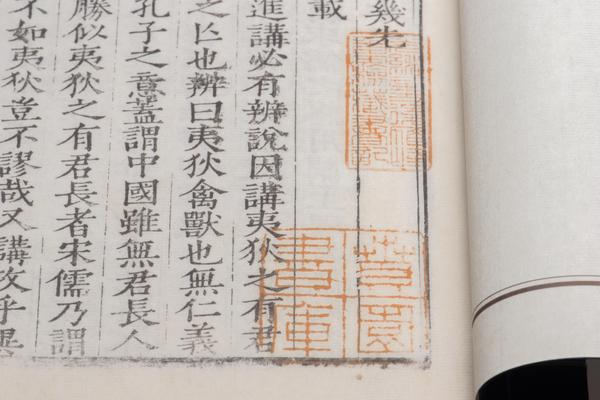 幾先
載
進講必有辨說因講夷狄之有君
之亾也辨曰夷狄禽獸也無仁義
孔子之意蓋謂中國雖無君長人
勝似夷狄之有君長者宋儒乃謂
不如夷狄豈不謬哉又講攻乎異
書庫